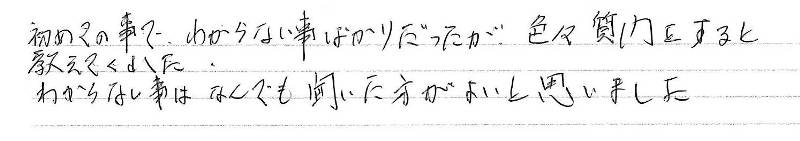 初めての事で、わからない事ばかりだったが、色々質問をすると
教えてくれた。
わからない事はなんでも聞いた方がよいと思いました